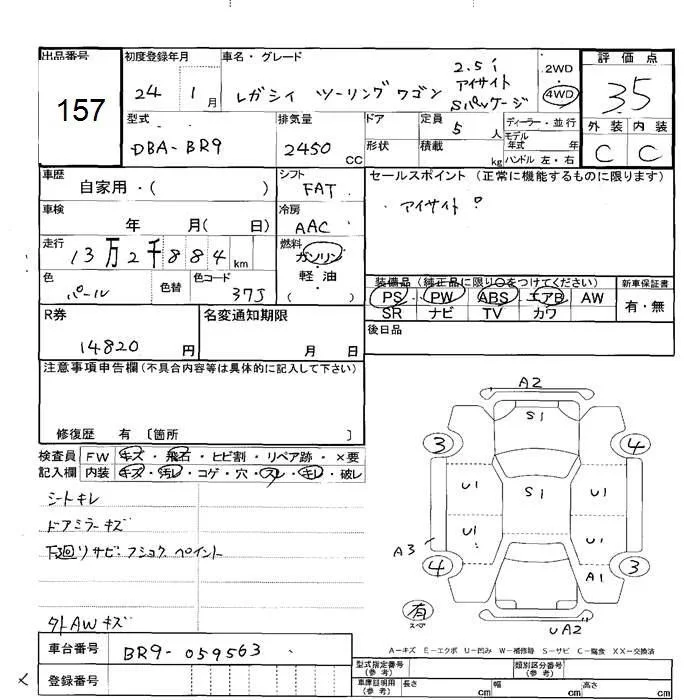 出品番号
157
初度登録年月
24 1月
車名・グレード
レガシィ ツーリングワゴン
2.5i
アイサイト
Sパッケージ
2WD
4WD
評価点
3.5
外装 内装
C C
型式
DBA-BR9
排気量
2450 CC
ドア
形状
定員
5 人
積載
kg
ディーラー・並行
モデル年式 年
ハンドル 左・右
車歴
自家用・( )
シフト
FAT
セールスポイント (正常に機能するものに限ります)
アイサイト
車検
年 月( 日)
冷房
AAC
走行
13万2千884km
燃料
ガソリン
軽油
( )
色
パール
色替
色コード
37J
装備品 (純正品に限り○をつけてください)
PS PW ABS エアB AW
SR ナビ TV カワ
新車保証書
有・無
後日品
R券
14820 円
名変通知期限
月 日
注意事項申告欄 (不具合内容等は具体的に記入して下さい)
修復歴 有 〔箇所 〕
検査員記入欄
FW キズ・飛石・ヒビ割・リペア跡・×要
内装 キズ・汚れ・コゲ・穴・スレ・キレ・破レ
シートキレ
ドアミラーキズ
下廻りサビ・フショク ペイント
タトAWキズ
A2
S1
3 4
U1 S1 U1
U1 U1
A3
4 3
A1
有
スペア
UA2
A=キズ E=エクボ U=凹み W=補修跡 S=サビ C=腐食 XX=交換済
車台番号
BR9-059563
登録番号
型式指定番号
(参考)
類別区分番号
(参考)
車庫証明用
(参考)
長さ cm 幅 cm 高さ cm